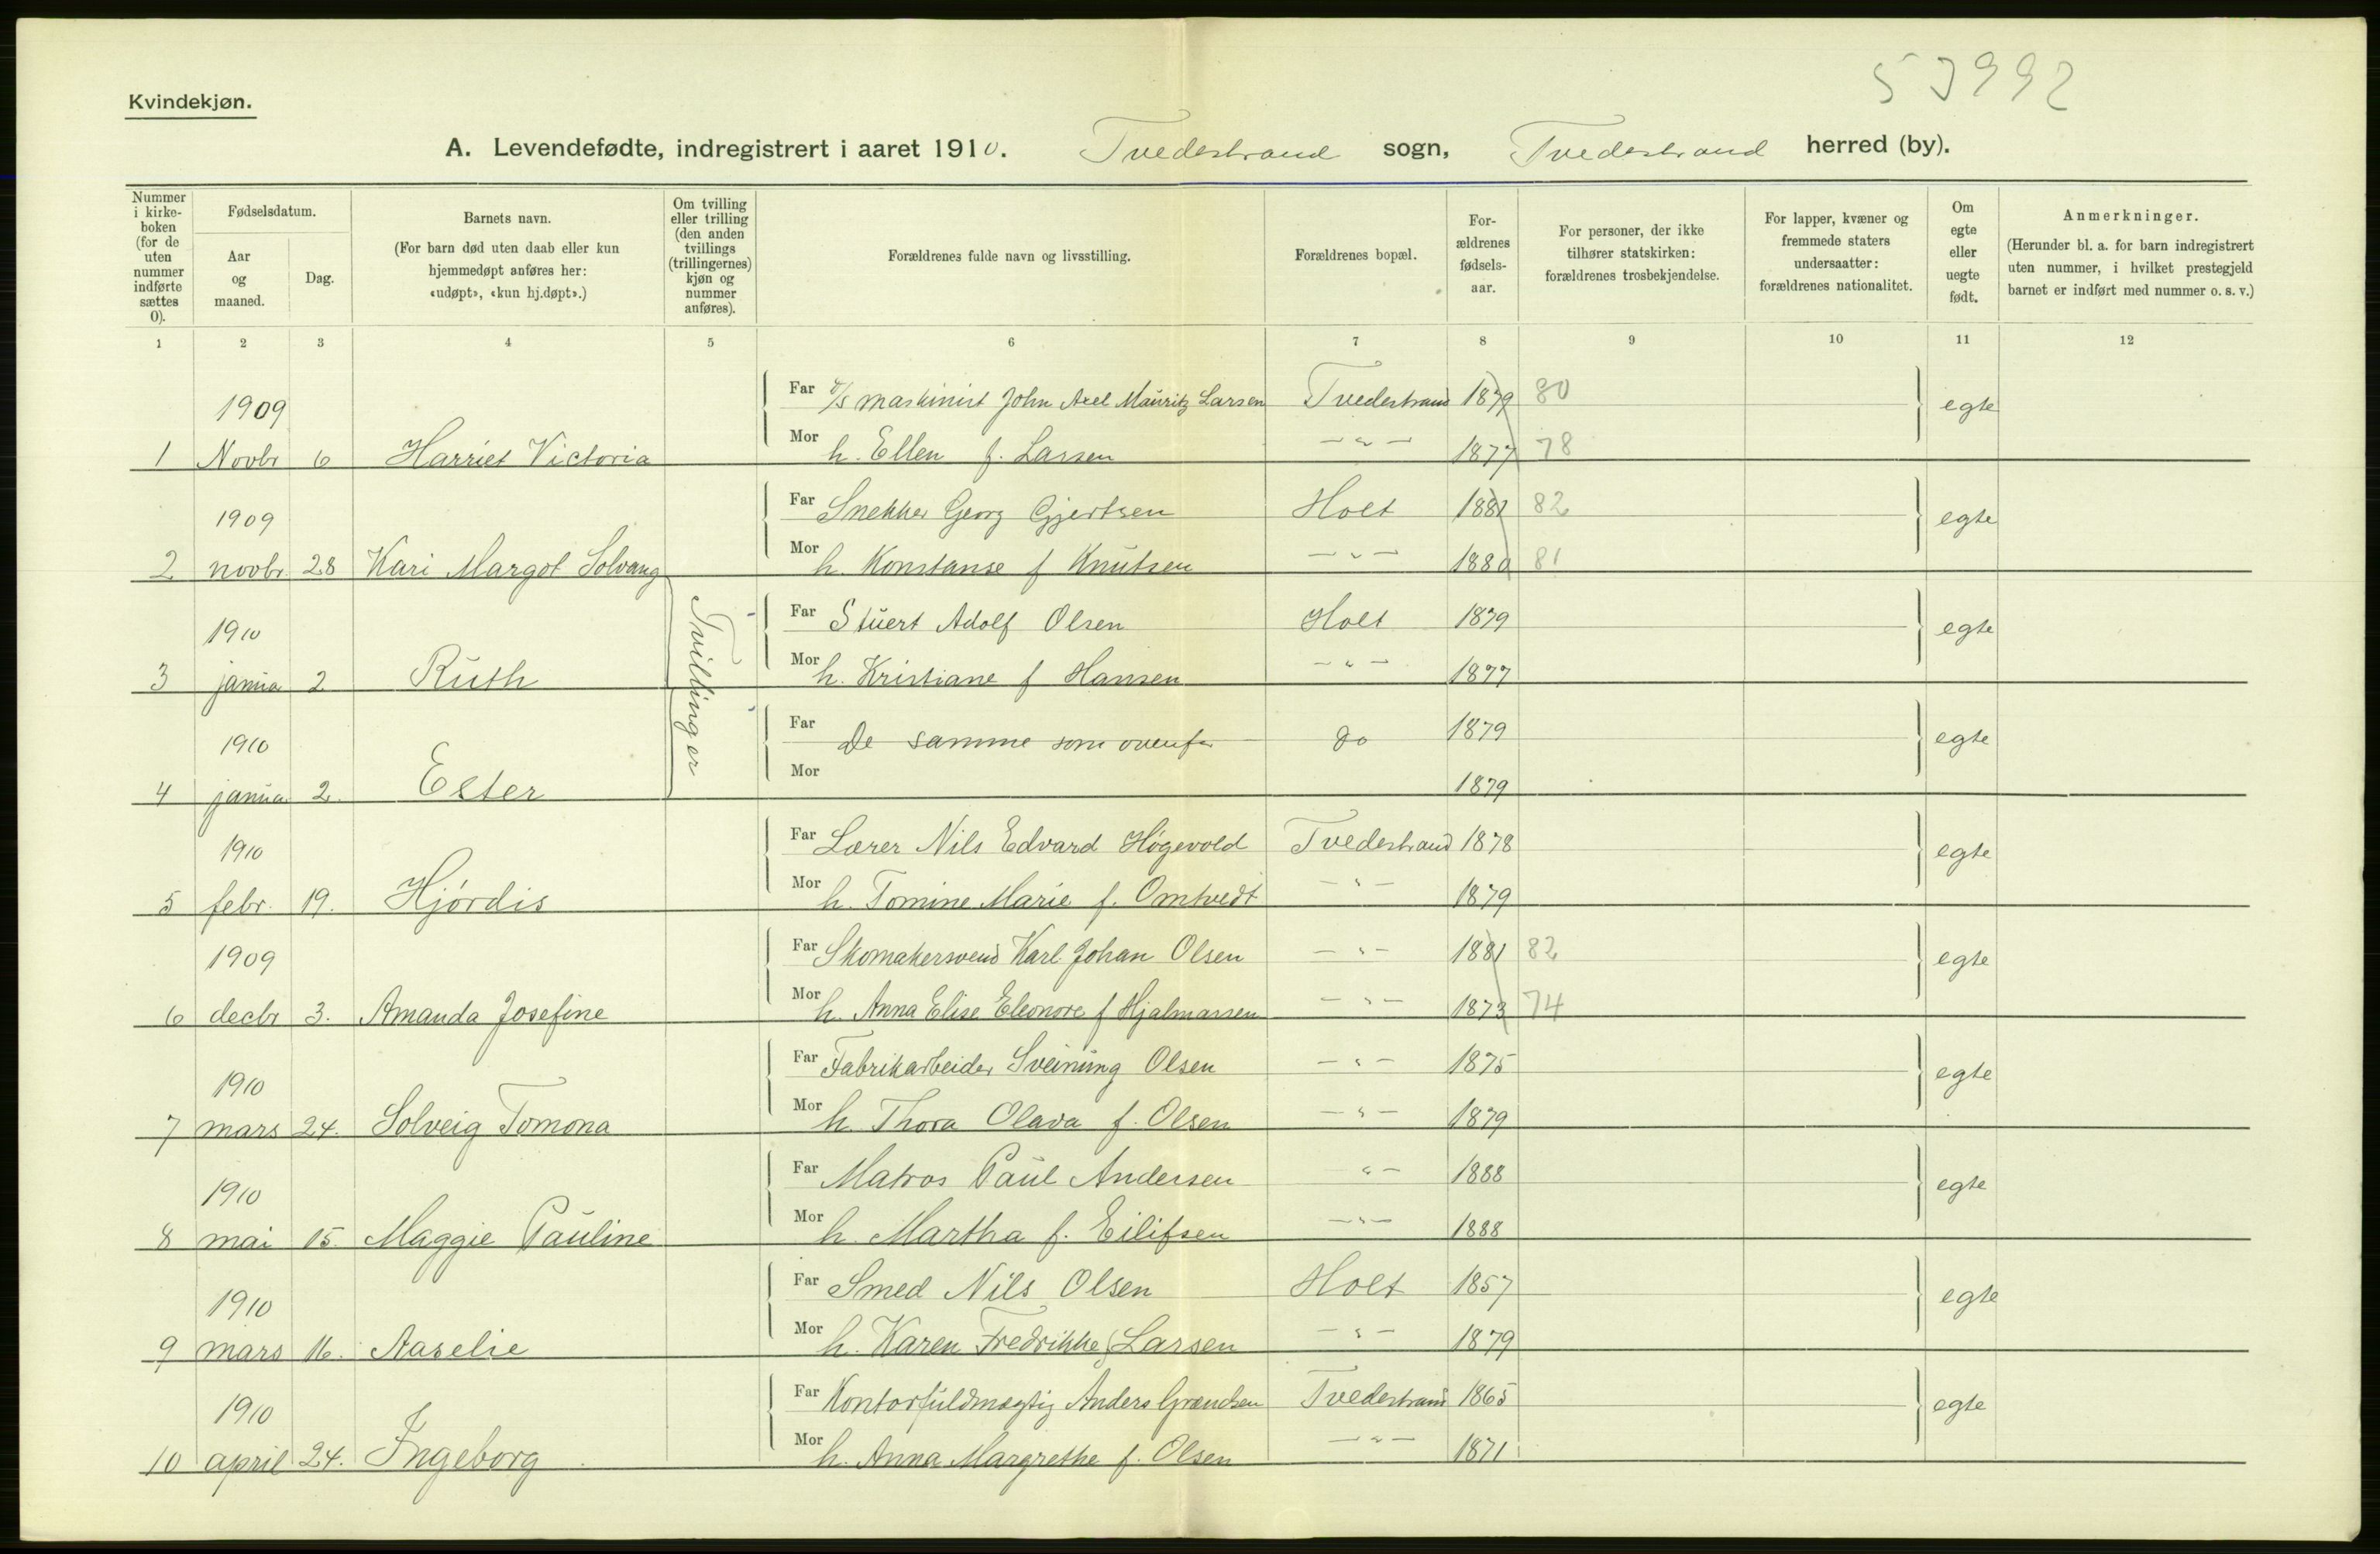 53992
Kvindekjøn.
A. Levendefødte, indregistrert i aaret 1910. Tvedestrand sogn, Tvedestrand herred (by).
Nummer i kirke-boken (for de uten nummer indførte sættes 0).
Fødselsdatum.
Aar og maaned.
Dag.
Barnets navn.
(For barn død uten daab eller kun hjemmedøpt anføres her: «udøpt», «kun hj.døpt».)
Om tvilling eller trilling (den anden tvillings (trillingernes) kjøn og nummer anføres).
Forældrenes fulde navn og livsstilling.
Forældrenes bopæl.
For-ældrenes fødsels-aar.
For personer, der ikke tilhører statskirken: forældrenes trosbekjendelse.
For lapper, kvæner og fremmede staters undersaatter: forældrenes nationalitet.
Om egte eller uegte født.
Anmerkninger.
(Herunder bl. a. for barn indregistrert uten nummer, i hvilket prestegjeld barnet er indført med nummer o. s. v.)
1 2 3 4 5 6 7 8 9 10 11 12
1909 Far D/S maskinist John Axel Mauritz Larsen Tvedestrand 1879 80 egte
1 Novbr 6 Harriet Victoria Mor h. Ellen f. Larsen — " — 1877 78
1909 Far Snekker Georg Gjertsen Holt 1881 82 egte
2 novbr. 28 Kari Margot Solvang Mor h. Konstanse f Knutsen — " — 1880 81
1910 Tvillinger Far Stuert Adolf Olsen Holt 1879 egte
3 janua 2 Ruth Mor h. Kristiane f Hansen — " — 1877
1910 Far De samme som ovenfor do 1879 egte
4 janua 2. Ester Mor 1879
1910 Far Lærer Nils Edvard Høgevold Tvedestrand 1878 egte
5 febr. 19. Hjórdis Mor h. Tomine Marie f. Omtvedt — " — 1879
1909 Far Skomakersvend Karl Johan Olsen — " — 1881 82 egte
6 decbr 3. Amanda Josefine Mor h. Anna Elise Eleonore f Hjalmarsen — " — 1873 74
1910 Far Fabrikarbeider Sveinung Olsen — " — 1875 egte
7 mars 24. Solveig Tomona Mor h. Thora Olava f. Olsen — " — 1879
1910 Far Matros Paul Andersen " — 1888 egte
8 mai 15. Maggie Pauline Mor h. Martha f. Eilifsen — " — 1888
1910 Far Smed Nils Olsen Holt 1857 egte
9 mars 16. Aaselie Mor h. Karen Fredrikke f Larsen — " — 1879
1910 Far Kontorfuldmægtig Anders Grændsen Tvedestrand 1865 egte
10 april 24. Ingeborg Mor h. Anna Margrethe f. Olsen — " — 1871